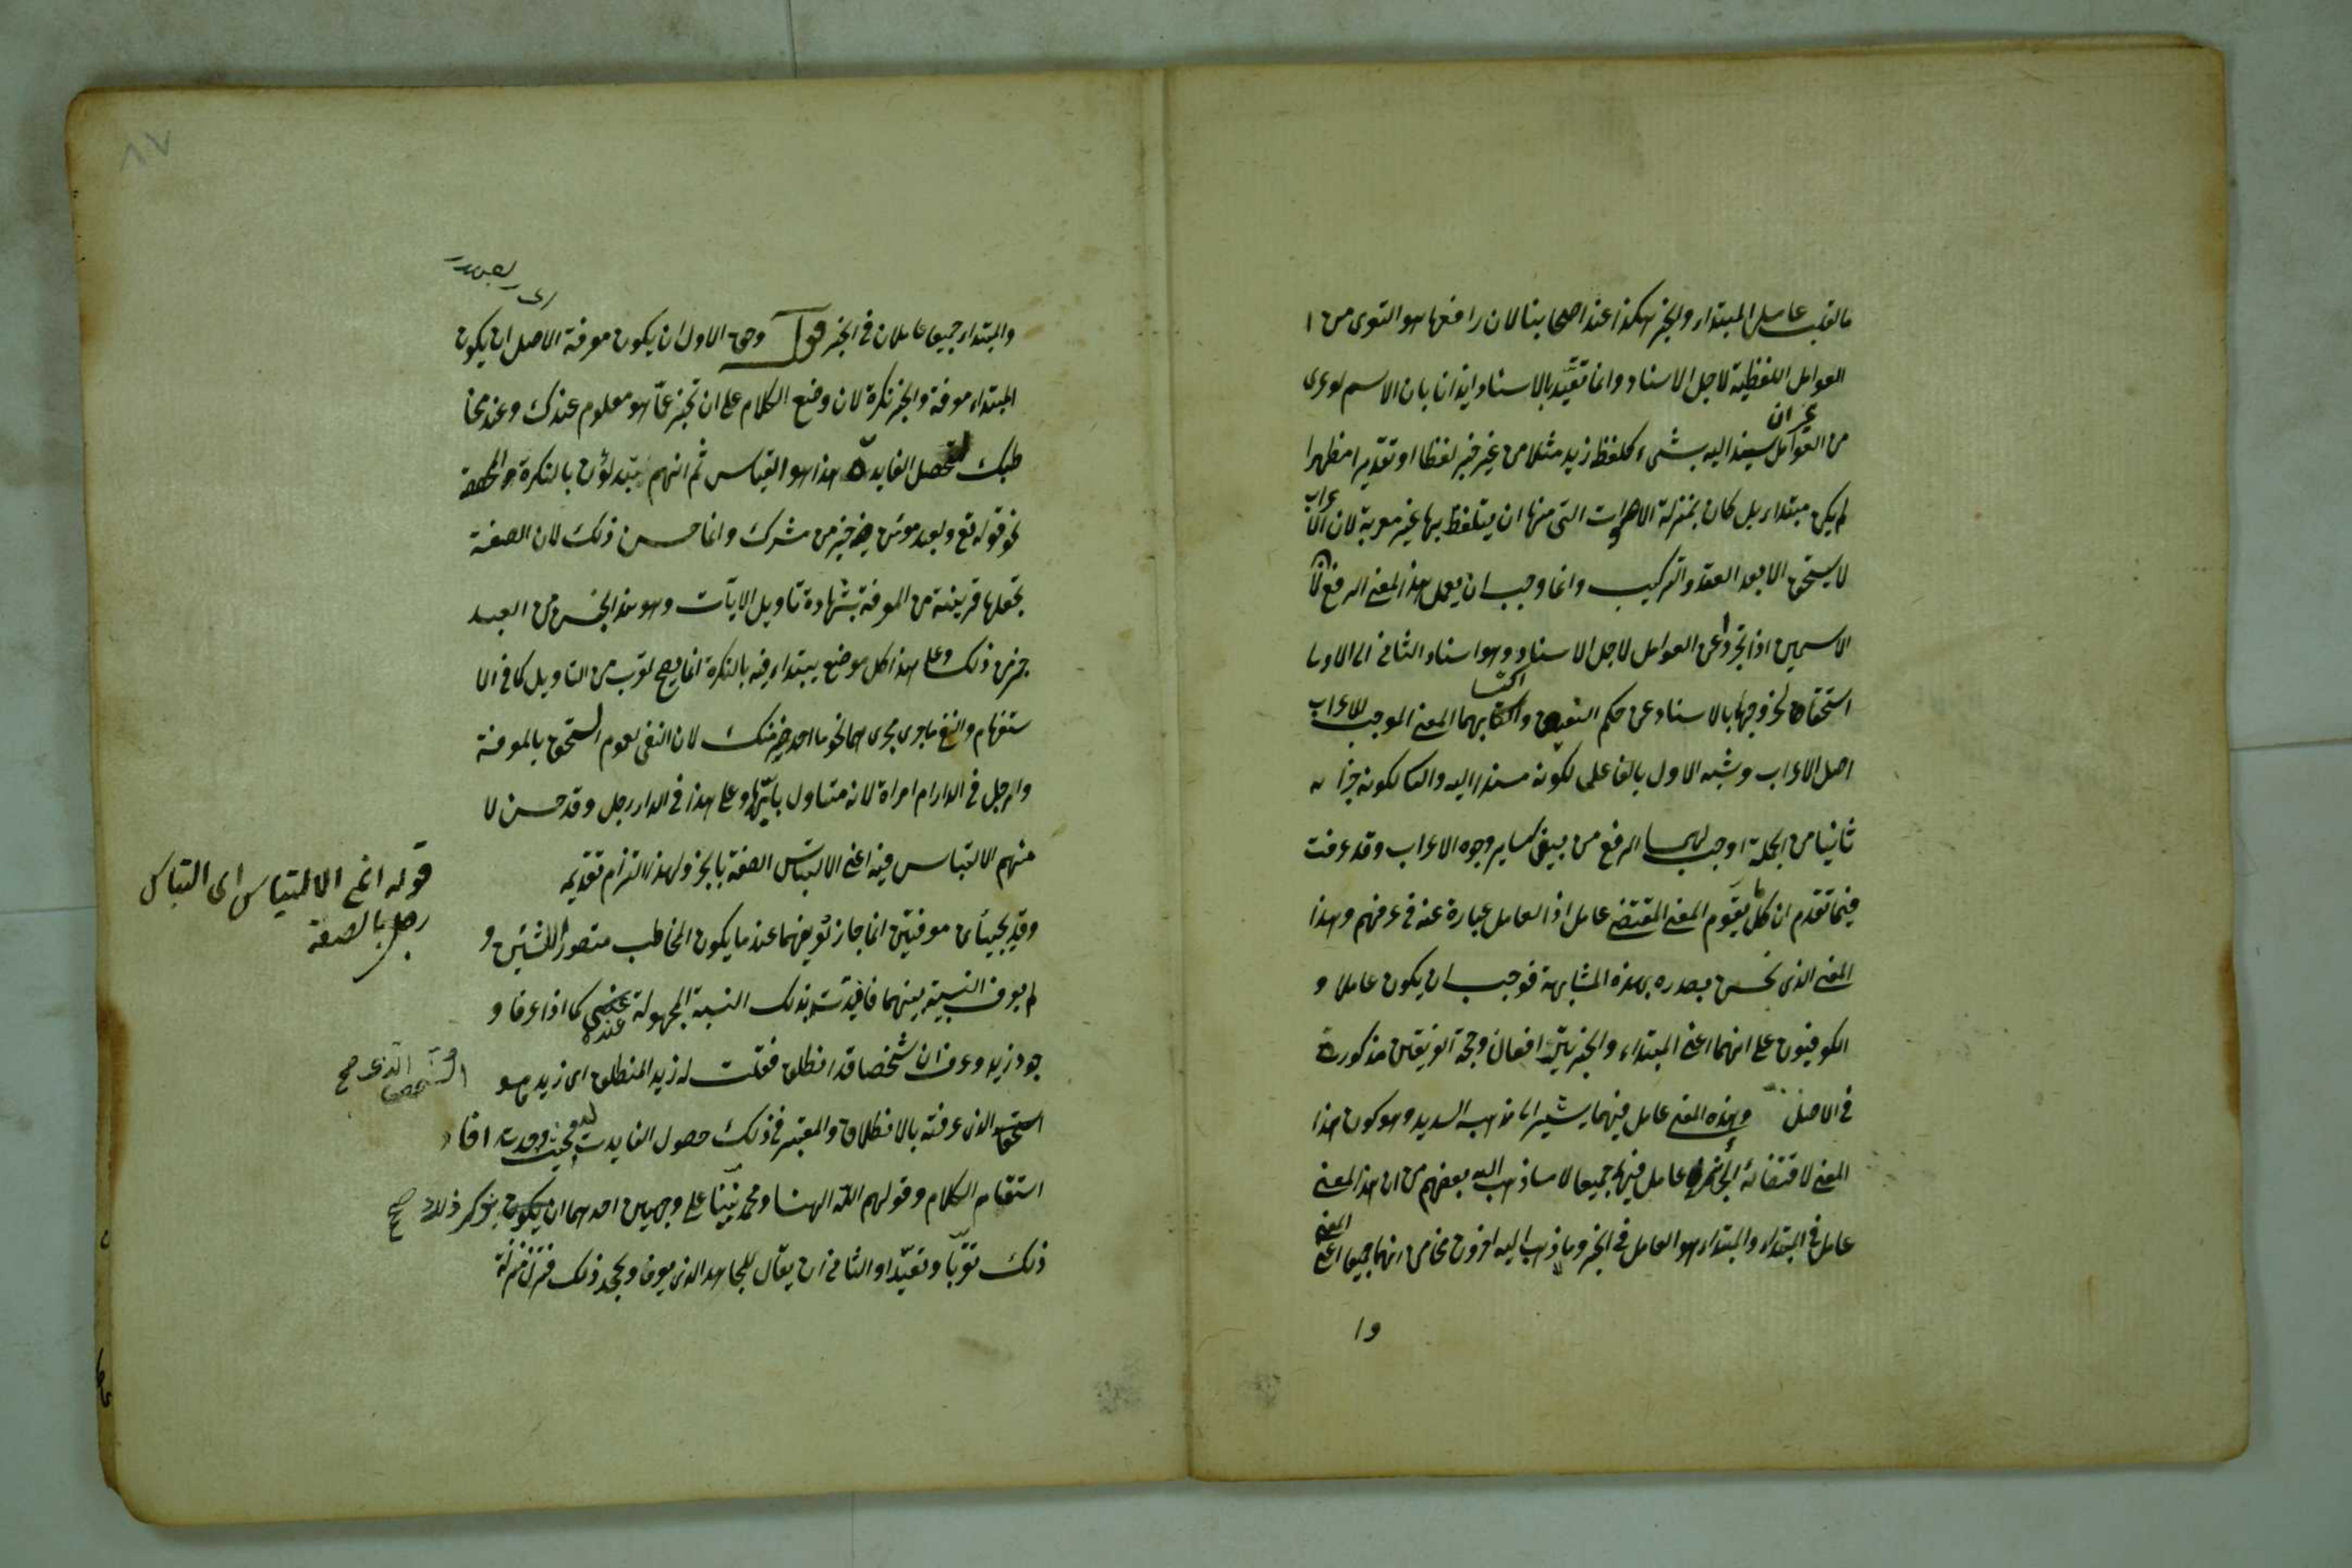 عامل المبتداء والخبر هكذا عند اصحابنا لان رافعها هو التعرى من ا
العوامل اللفظية لاجل الاسناد وانما تقيد بالاسناد ايذانا بان الاسم لو عرى
من العوامل غير ان يسند اليه بشىء كلفظ زيد مثلا من غير خبر لفظا او تقديرا مظهرا
لم يكن مبتداء بل كان بمنزلة الاصوات التى منها ان يتلفظ بها غير معربة لان الاعراب
لا يستحق الا بعد العقد والتركيب وانما وجب ان يعمل هذا المعنى الرفع
الاسمين اذا تجردا عن العوامل لاجل الاسناد وهو اسناد الثانى الى الاول
استحقاق لخروجها بالاسناد عن حكم واكتسابهما المعنى الموجب للاعراب
اصل الاعراب وشبه الاول بالفاعل لكونه مسندا اليه لكونه جزأ
ثانيا من الجملة اوجب لهما الرفع من بين ساير وجوه الاعراب وقد عرفت
فيما تقدم ان كل ما يتقوم المعنى المقتضى عامل اذ العامل عبارة عنه فى عرفهم وهذا
المعنى الذى نحن بصدده بهذه المشابهة فوجب ان يكون عاملا و
الكوفيون على انهما اعنى المبتداء والخبر يترافعان وحجة الفريقين مذكورة
فى الاصل وهذه المعنى عامل فيهما يشير الى مذهبه السديد وهو كون هذا
المعنى لاقتضائه الجزئين عامل فيهما جميعا لا ما ذهب اليه بعضهم من ان هذا المعنى
عامل فى المبتداء والمبتداء هو العامل فى الخبر وما ذهب اليه اخرون من انهما جميعا اعنى المعنى
وا
٨٧
والمبتداء جميعا عاملان فى الخبر قوله وحق الاول ان يكون معرفة الاصل ان يكون
المبتداء معرفة والخبر نكرة لان وضع الكلام على ان تخبر عما هو معلوم عندك وعند مخا
طبك لتحصل الفايدة هذا هو القياس ثم انهم يبتدئون بالنكرة
نحو قوله تع ولعبد مؤمن خير من مشرك وانما حسن ذلك لان الصفة
تجعلها قريبة من المعرفة بشهادة تاويل الآيات وهو هذا الجنس من العبيد
خير من ذلك وعلى هذا كل موضع يبتداء فيه بالنكرة انما يصح لقرب من التاويل كما فى الا
ستفهام والنفى ما جرى مجراهما نحو ما احد خير منك لان النفى لعموم استحق بالمعرفة
وارجل فى الدار ام امراة لانه متناول بايهما وعلى هذا فى الدار رجل وقد حسن لا
منهم الالتباس فيه اعنى الالتباس الصفة بالخبر ولهذا التزم تقديمه
وقد يجيئان معرفتين انما جاز تعريفهما عند ما يكون المخاطب متصورا للشيئين و
لم يعرف النسبة بينهما فافيدت بذلك النسبة المجهولة عنده كما اذا عرفا و
جود زيد وعرف ان شخصا قد انطلق فقلت له زيد المنطلق اى زيد هو
الذى عرفته بالانطلاق والمعتبر فى ذلك حصول الفايدة فحيث وجدت افا
استقام الكلام وقولهم الله الهنا ومحمد نبينا على وجهين احدهما ان يكون يذكر ذلك صح
ذلك تقربا وتعبدا والثانى ان يقال للجاهد الذى يعرف ويجحد ذلك فتنزل منزلة
قوله اعنى الالتباس اى التباس
رجل بالصفة
الشخص الذى صح